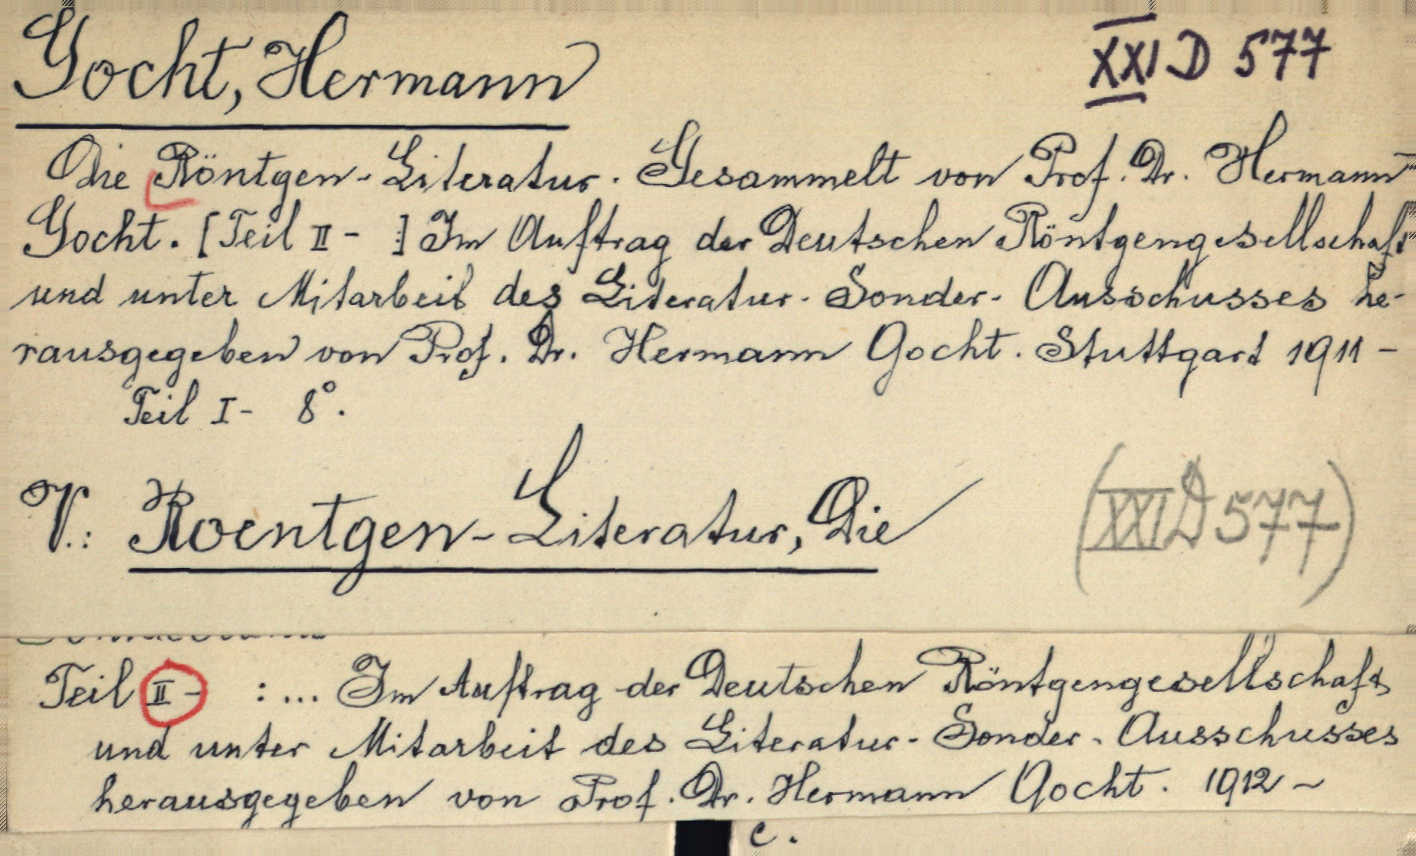 Gocht, Hermann
XXI D 577
Die Röntgen-Literatur. Gesammelt von Prof. Dr. Hermann
Gocht. [Teil II - ] Im Auftrag der Deutschen Röntgengesellschaft
und unter Mitarbeit des Literatur-Sonder-Ausschusses he-
rausgegeben von Prof. Dr. Hermann Gocht. Stuttgart 1911 -
Teil I - 8°.
V.: Roentgen-Literatur, Die
(XXI D 577)
Teil II - : ... Im Auftrag der Deutschen Röntgengesellschaft
und unter Mitarbeit des Literatur-Sonder-Ausschusses
herausgegeben von Prof. Dr. Hermann Gocht. 1912 -
c.